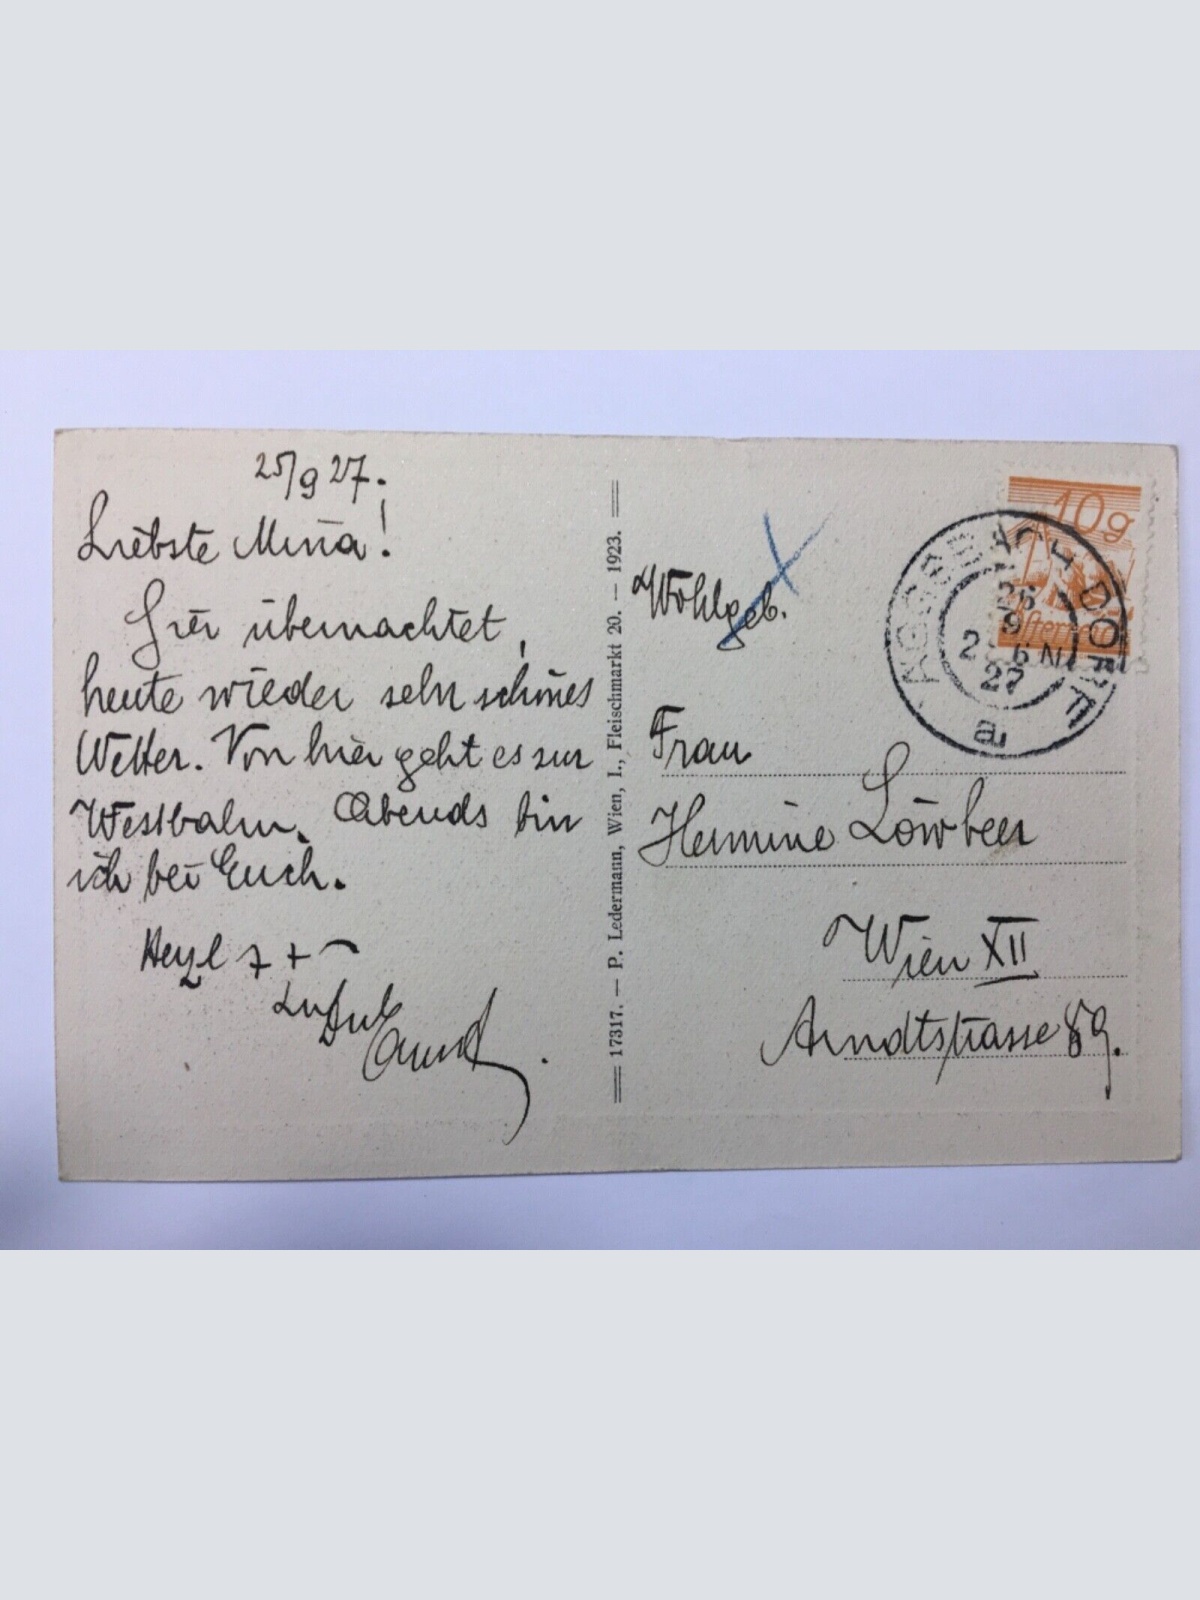 25/9 27.
Liebste Mina!
Hier übernachtet,
heute wieder sehr schönes
Wetter. Von hier geht es zur
Westbahn. Abends bin
ich bei Euch.
Herzl
17317. — P. Ledermann, Wien, I., Fleischmarkt 20. — 1923.
10g
26
9
27
a
Wohlgeb.
Frau
Hermine Löwbeer
Wien XII
Arndtstrasse 89.